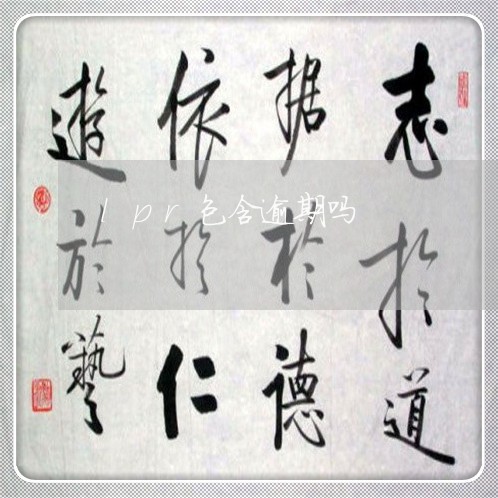 志於道
据於德
依於仁
遊於藝
lpr包含逾期吗